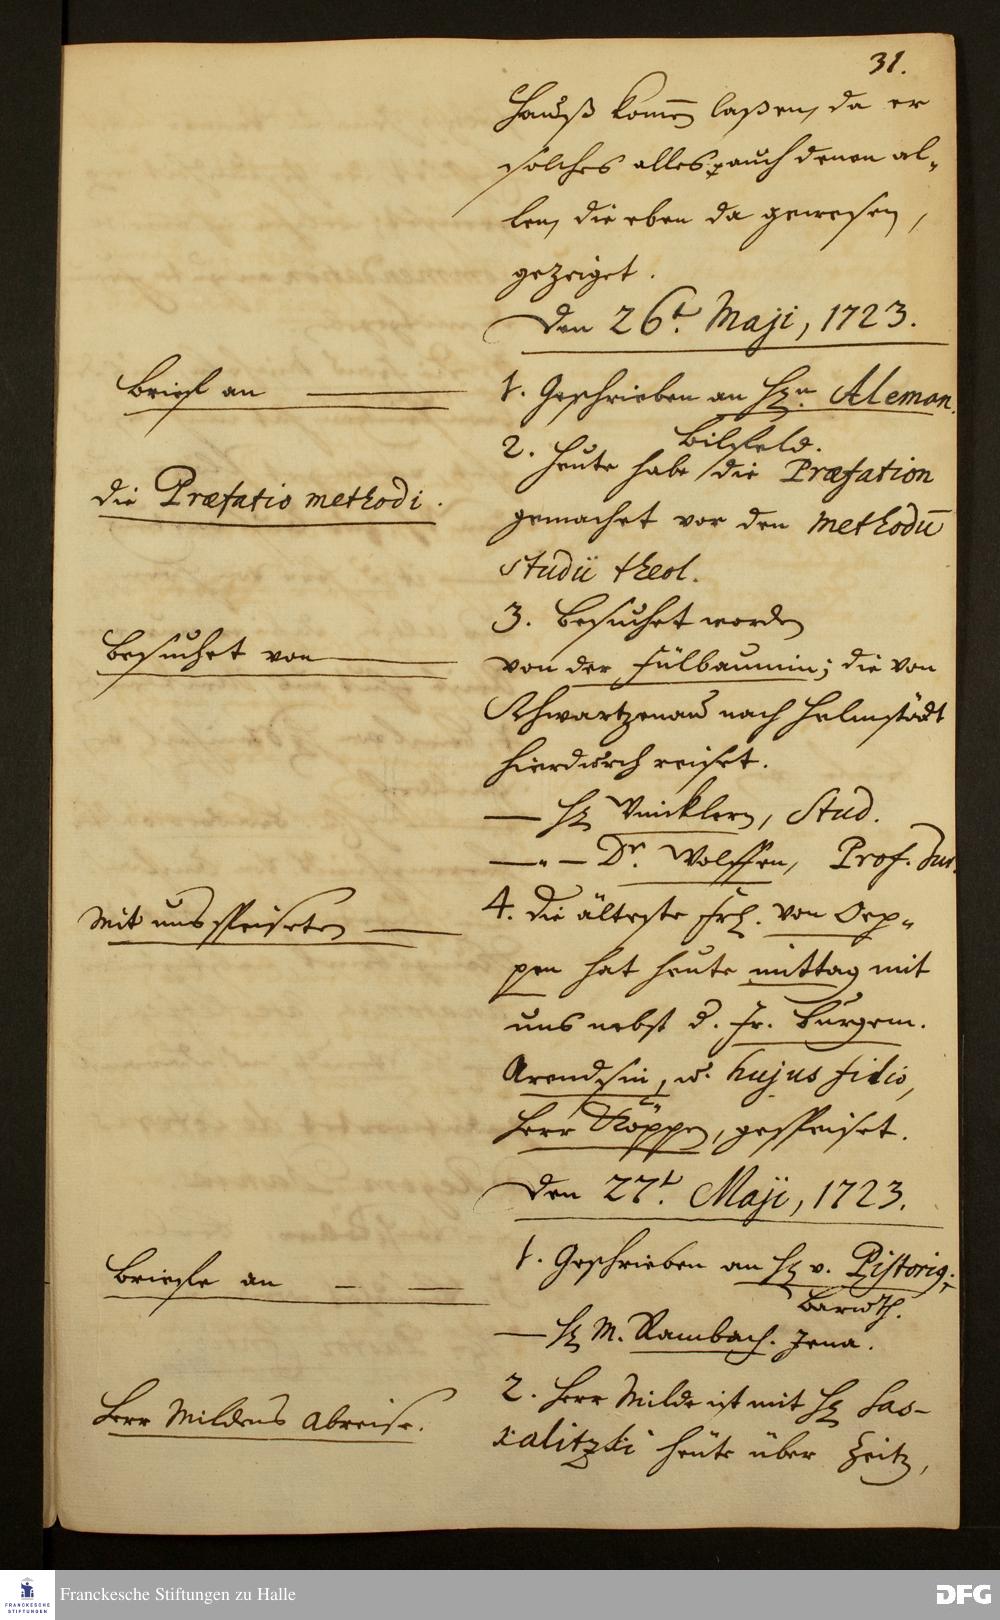 31.
Hauß komen laßen, da er
solches alles, auch denen al-
len, die eben da gewesen,
gezeiget.
Den 26t. Maji, 1723.
Brief an
1. Geschrieben an Hrn. Aleman.
Bilefeld.
2. Heute habe die Præfation
Die Præfatio methodi.
gemachet vor den Methodū
studii theol.
3. Besuchet worden
Besuchet von
von der Fülbaumin; die von
Schwartzenau nach Helmstädt
hierdurch reiset.
— Hr. Wincklern, Stud.
— " — Dr. Wolffen, Prof. Jur.
Mit uns speiseten
4. Die älteste Frl. von Oep-
pen hat heute mittag mit
uns nebst d. Fr. Burgem.
Arendsin, u. hujus filio,
Herr Köppen, gespeiset.
Den 27t. Maji, 1723.
Briefe an
1. Geschrieben an Hr. v. Pistorig.
Bareuth.
— Hr. M. Rambach. Jena.
Herr Mildens Abreise.
2. Herr Milde ist mit Hr.
heute über Zeitz,
Franckesche Stiftungen zu Halle
FRANCKESCHE
STIFTUNGEN
DFG